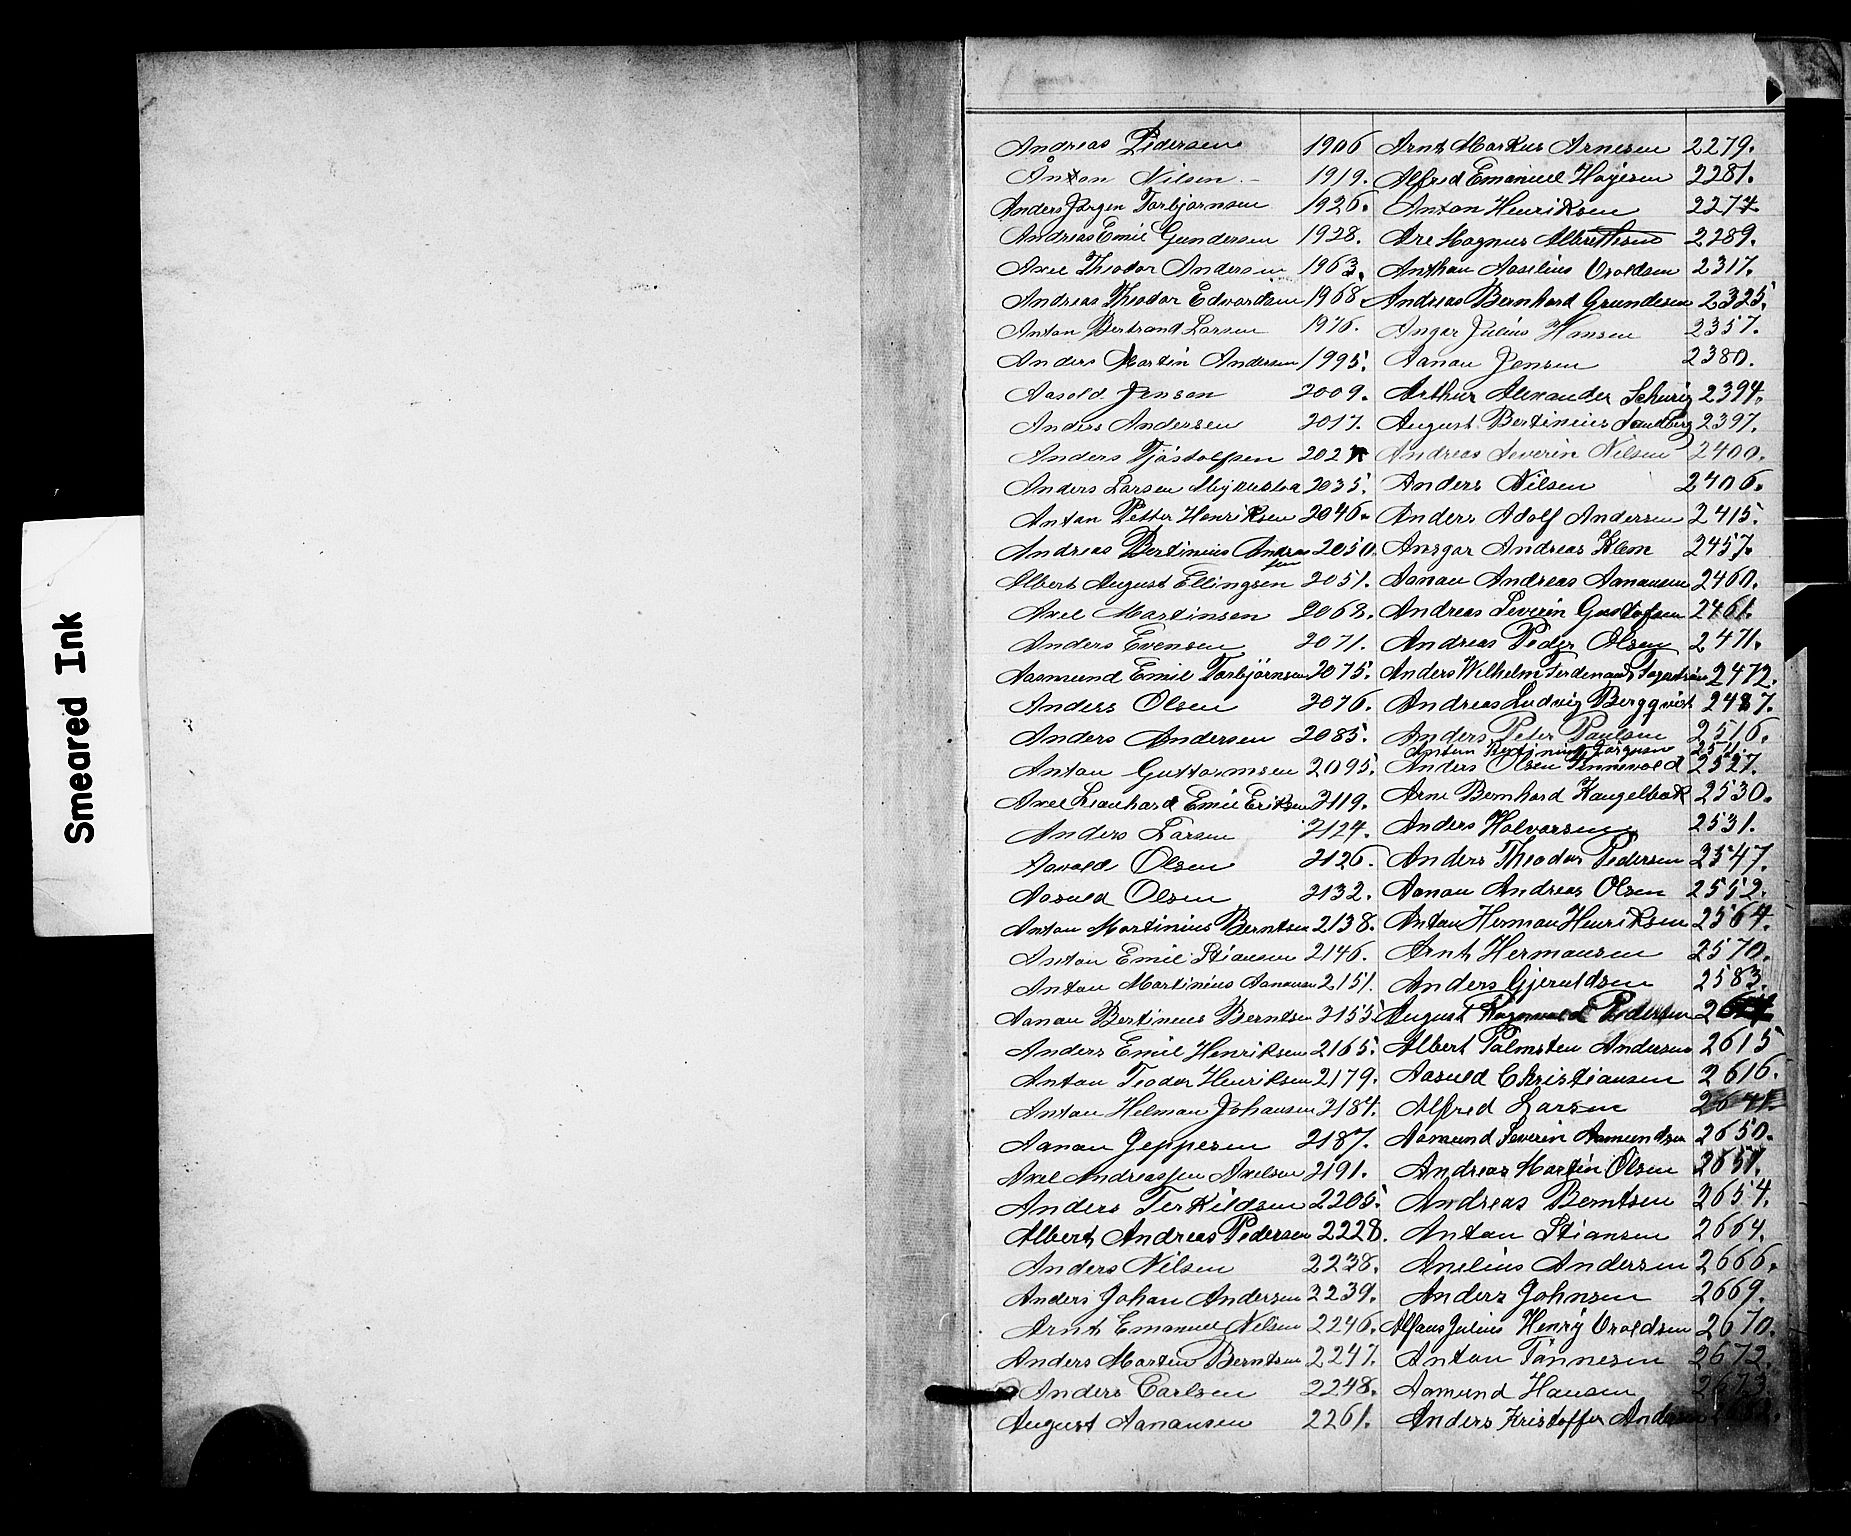 Smeared Ink
Andreas Pedersen 1906
Anton Nilsen 1919.
Anders Jörgen Torbjörnsen 1926.
Andreas Emil Gundersen 1928.
Axel Theodor Andersen 1963.
Andreas Theodor Edvardsen 1968
Anton Bertrand Larsen 1976.
Anders Martin Andersen 1995.
Aasold Jensen 2009.
Anders Andersen 2017.
Anders Tjöstolfsen
Anders Larsen 2035.
Anton Petter Henriksen 2046.
Andreas Bertinius Andreassen 2050
Albert August Ellingsen 2051.
Axel Martinsen 2068.
Anders Evensen 2071.
Aasmund Emil Torbjörnsen 2075.
Anders Olsen 2076.
Anders Andersen 2085.
Anton Guttormsen 2095.
Axel Leonhard Emil Eriksen 2119.
Anders Larsen 2124.
Aasuld Olsen 2126.
Aasuld Olsen 2132.
Anton Martinius Berntsen 2138.
Anton Emil Stiansen 2146.
Anton Martinius Aanausen 2151.
Aanau Bertineus Berntsen 2153.
Anders Emil Henriksen 2165.
Anton Teodor Henriksen 2179.
Anton Helman Johansen 2184.
Aanau Jeppesen 2187.
Axel Andreassen Axelsen 2191.
Anders Terkildsen 2205.
Albert Andreas Pedersen 2228.
Anders Nilsen 2238.
Anders Johan Andersen 2239.
Arnt Emanuel Nilsen 2246.
Anders Martin Berntsen 2247.
Anders Carlsen 2248.
August Aanausen 2261.
Arnt Markus Arnesen 2279.
Alfred Emanuel Hajesen 2281.
Anton Henriksen 2274
Are Magnus Albretsen 2289.
Anthan Aselius Uvoldsen 2317.
Andreas Bernhard Grundesen 2325.
Anger Julius Hansen 2357.
Aanau Jensen 2380.
Arthur Alexander Schurig 2394.
August Bertinius Sandberg 2397.
Andreas Severin Nilsen 2400.
Anders Nilsen 2406.
Anders Adolf Andersen 2415.
Ansgar Andreas Klem 2457.
Aanau Andreas Aanausen 2460.
Andreas Severin Gustafsen 2461.
Andreas Peder Olsen 2471.
Anders Wilhelm Ferdenand 2472.
Andreas Ludvig Bergqvist 2487.
Anders Peter Paulsen 2516.
Anton Bertinius Jörgensen
Anders Olsen Tennevold 2527.
Arne Bernhard Kaugelbak 2530.
Anders Halvorsen 2531.
Anders Theodor Pedersen 2547.
Aanau Andreas Olsen 2552.
Anton Herman Henriksen 2564.
Arnt Hermansen 2570.
Anders Gjeruldsen 2583.
August Ragnvald Pedersen
Albert Palmsten Andersen 2615
Aasuld Christiansen 2616.
Alfred Larsen 2641.
Aasmund Severin Aamundsen 2650.
Andreas Martin Olsen 2651.
Andreas Berntsen 2654.
Anton Stiansen 2664.
Anelius Andersen 2666.
Anders Johnsen 2669.
Alfans Julius Henry Uvoldsen 2670.
Anton Tönnesen 2672.
Aamund Hansen 2673.
Anders Kristoffer Andersen